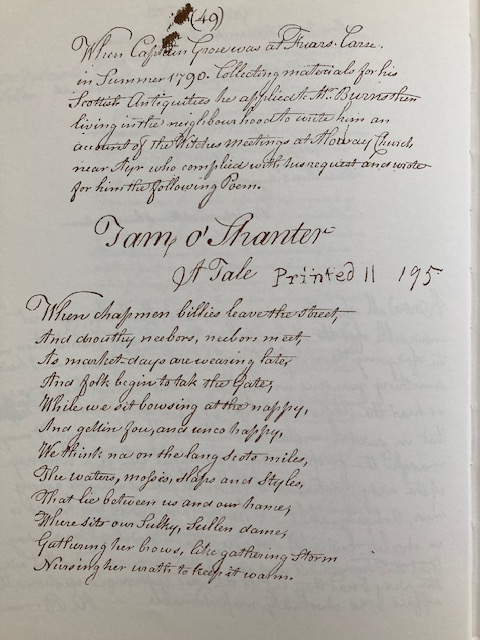 (49)
When Captain Grose was at Friars. Carse.
in Summer 1790. Collecting materials for his
Scottish Antiquities he applied to Mr. Burns then
living in the neighbourhood to write him an
account of the Witches meetings at Aloway Church
near Ayr who complied with his request and wrote
for him the following Poem.
Tam o' Shanter
A Tale Printed II 195
When chapmen billies leave the street,
And drouthy neebors, neebors meet,
As market-days are wearing late,
And folk begin to tak the Gate,
While we sit bowsing at the nappy,
And gettin fou, and unco happy,
We think na on the lang scots miles,
The waters, mosses, slaps and Styles,
That lie between us and our hame,
Where sits our Sulky, Sullen dame,
Gathering her brows, like gathering Storm
Nursing her wrath to keep it warm.